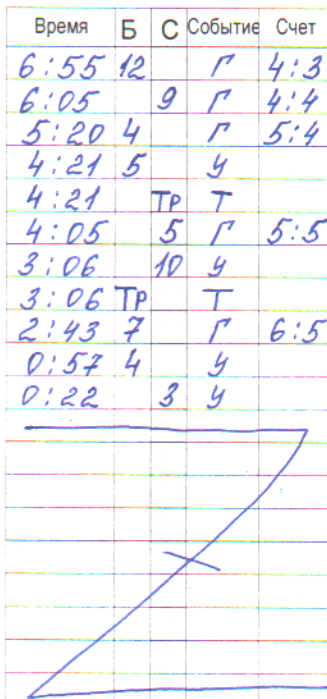 Время Б С Событие Счет
6:55 12 Г 4:3
6:05 9 Г 4:4
5:20 4 Г 5:4
4:21 5 У
4:21 ТР Т
4:05 5 Г 5:5
3:06 10 У
3:06 ТР Т
2:43 7 Г 6:5
0:57 4 У
0:22 3 У